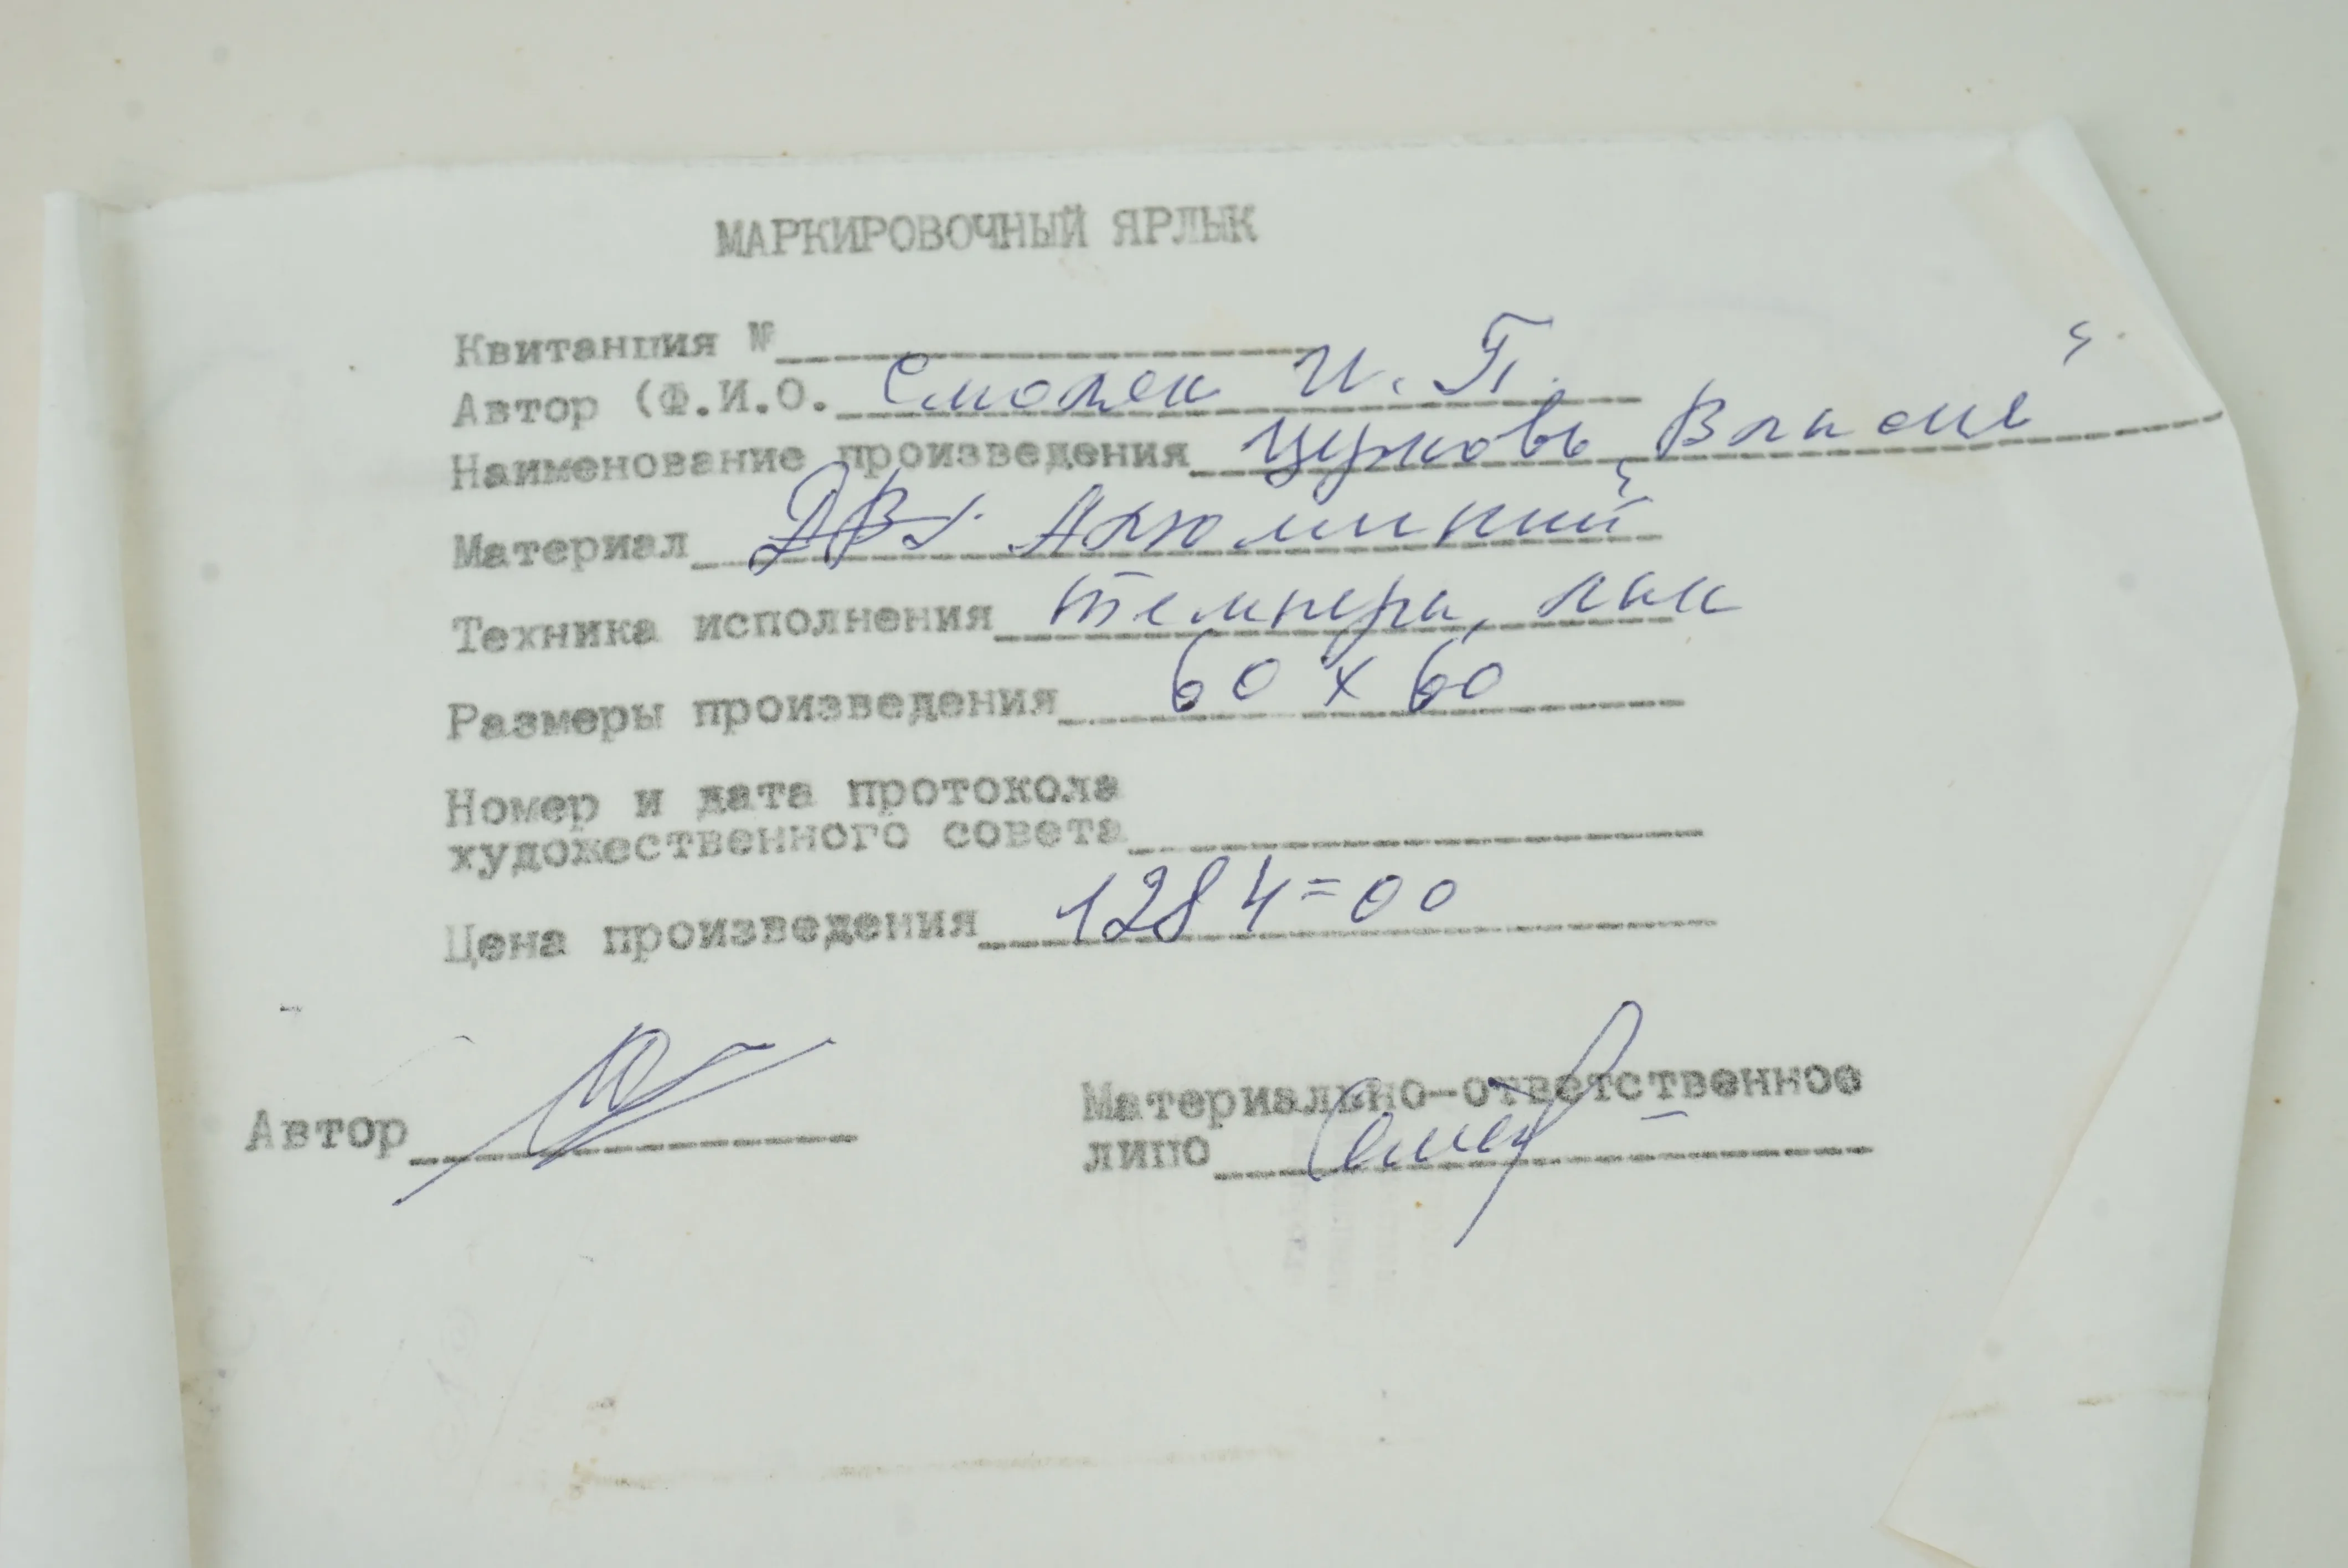 МАРКИРОВОЧНЫЙ ЯРЛЫК
Квитанция №
Автор (Ф.И.О. Смоляк И. П.
Наименование произведения Церковь Власия
Материал Алюминий
Техника исполнения темпера, лак
Размеры произведения 60 х 60
Номер и дата протокола
художественного совета
Цена произведения 1284=00
Автор
Материально-ответственное
лицо